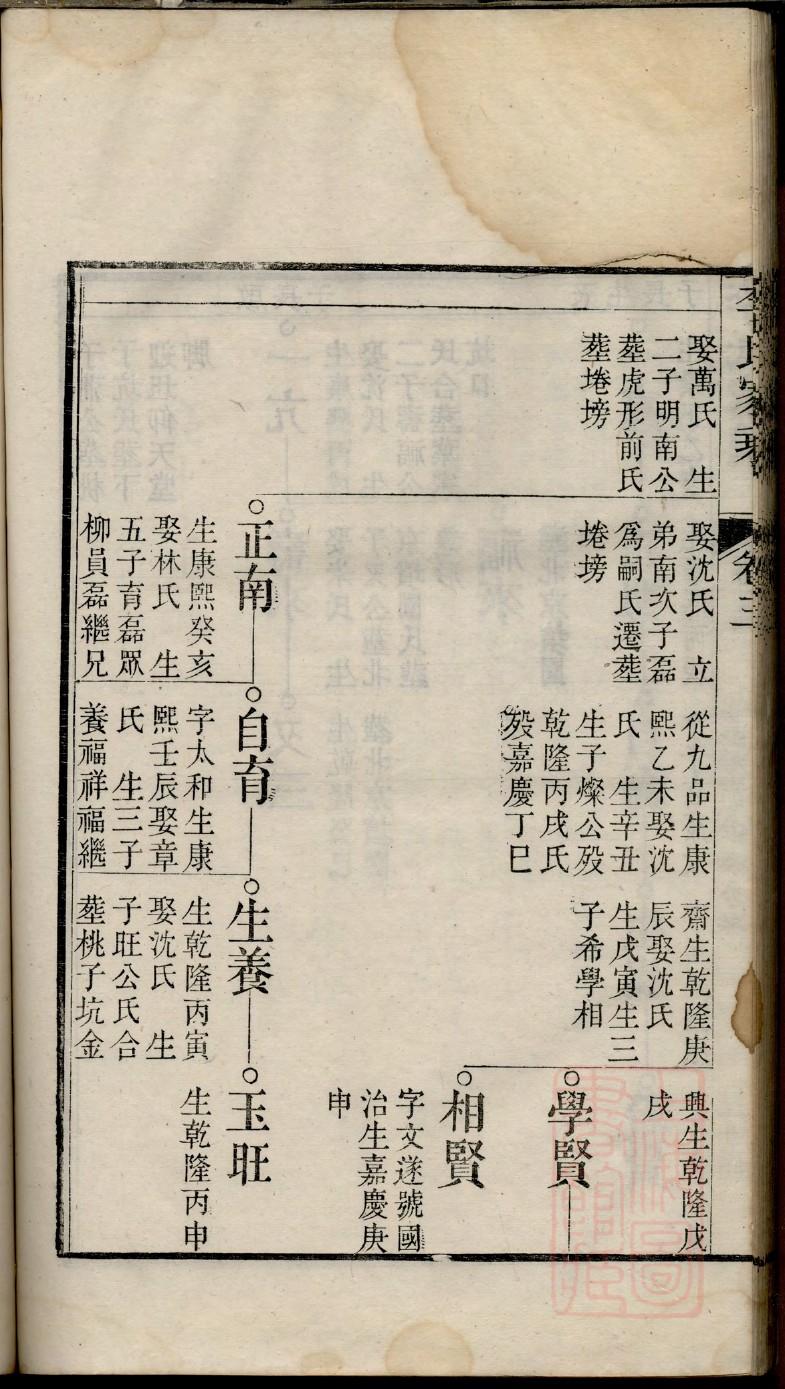 卷三
娶萬氏　生
二子明南公
塟虎形前氏
塟埢塝
娶沈氏　立
弟南次子磊
爲嗣氏遷塟
埢塝
從九品生康
熙乙未娶沈
氏　生辛丑
生子燦公殁
乾隆丙戌氏
殁嘉慶丁巳
齋生乾隆庚
辰娶沈氏
生戊寅生三
子希學相
興生乾隆戊
戌
學賢
相賢
字文遂號國
治生嘉慶庚
申
正南
生康熙癸亥
娶林氏　生
五子育磊眾
柳員磊繼兄
自育
字太和生康
熙壬辰娶章
氏　生三子
養福祥福繼
生養
生乾隆丙寅
娶沈氏　生
子旺公氏合
塟桃子坑金
玉旺
生乾隆丙申